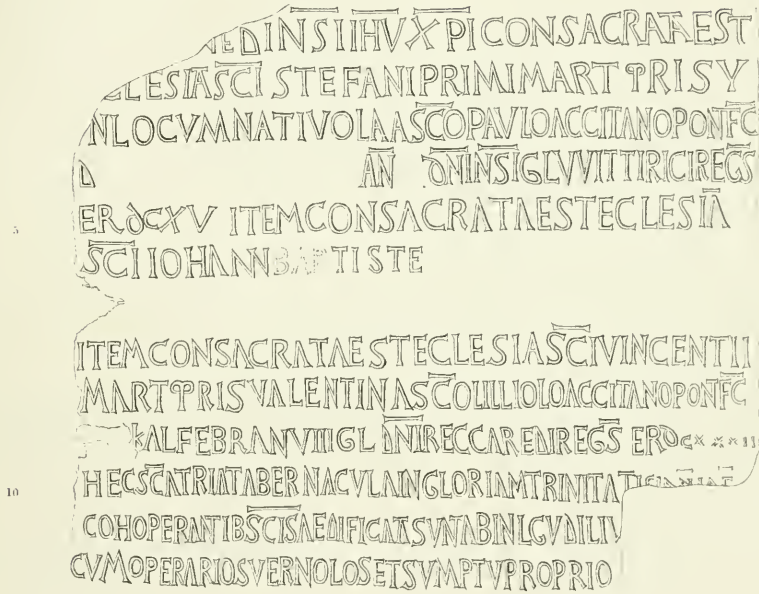 NEDINSIIHVXPICONSACRATAEST
CLESIASCISTEFANIPRIMIMARTYRISY
NLOCVMNATIVOLAASCOPAVLOACCITANOPONFC
D AN DNINSIGLVVITTIRICIREGS
5 ERDCXV ITEMCONSACRATAESTECLESIA
SCIIOHANNBAPTISTE
ITEMCONSACRATAESTECLESIASCIVINCENTII
MARTYRISVALENTINASCOLILLIOLOACCITANOPONFC
KALFEBRANVIIIGLDNIRECCAREDIREGS ERDCXXXII
10 HECSCATRIATABERNACVLAINGLORIAMTRINITATIS
COHOPERANTIBSCISAEDIFICATASVNTABINLGVDILIV
CVMOPERARIOSVERNOLOSETSVMPTVPROPRIO